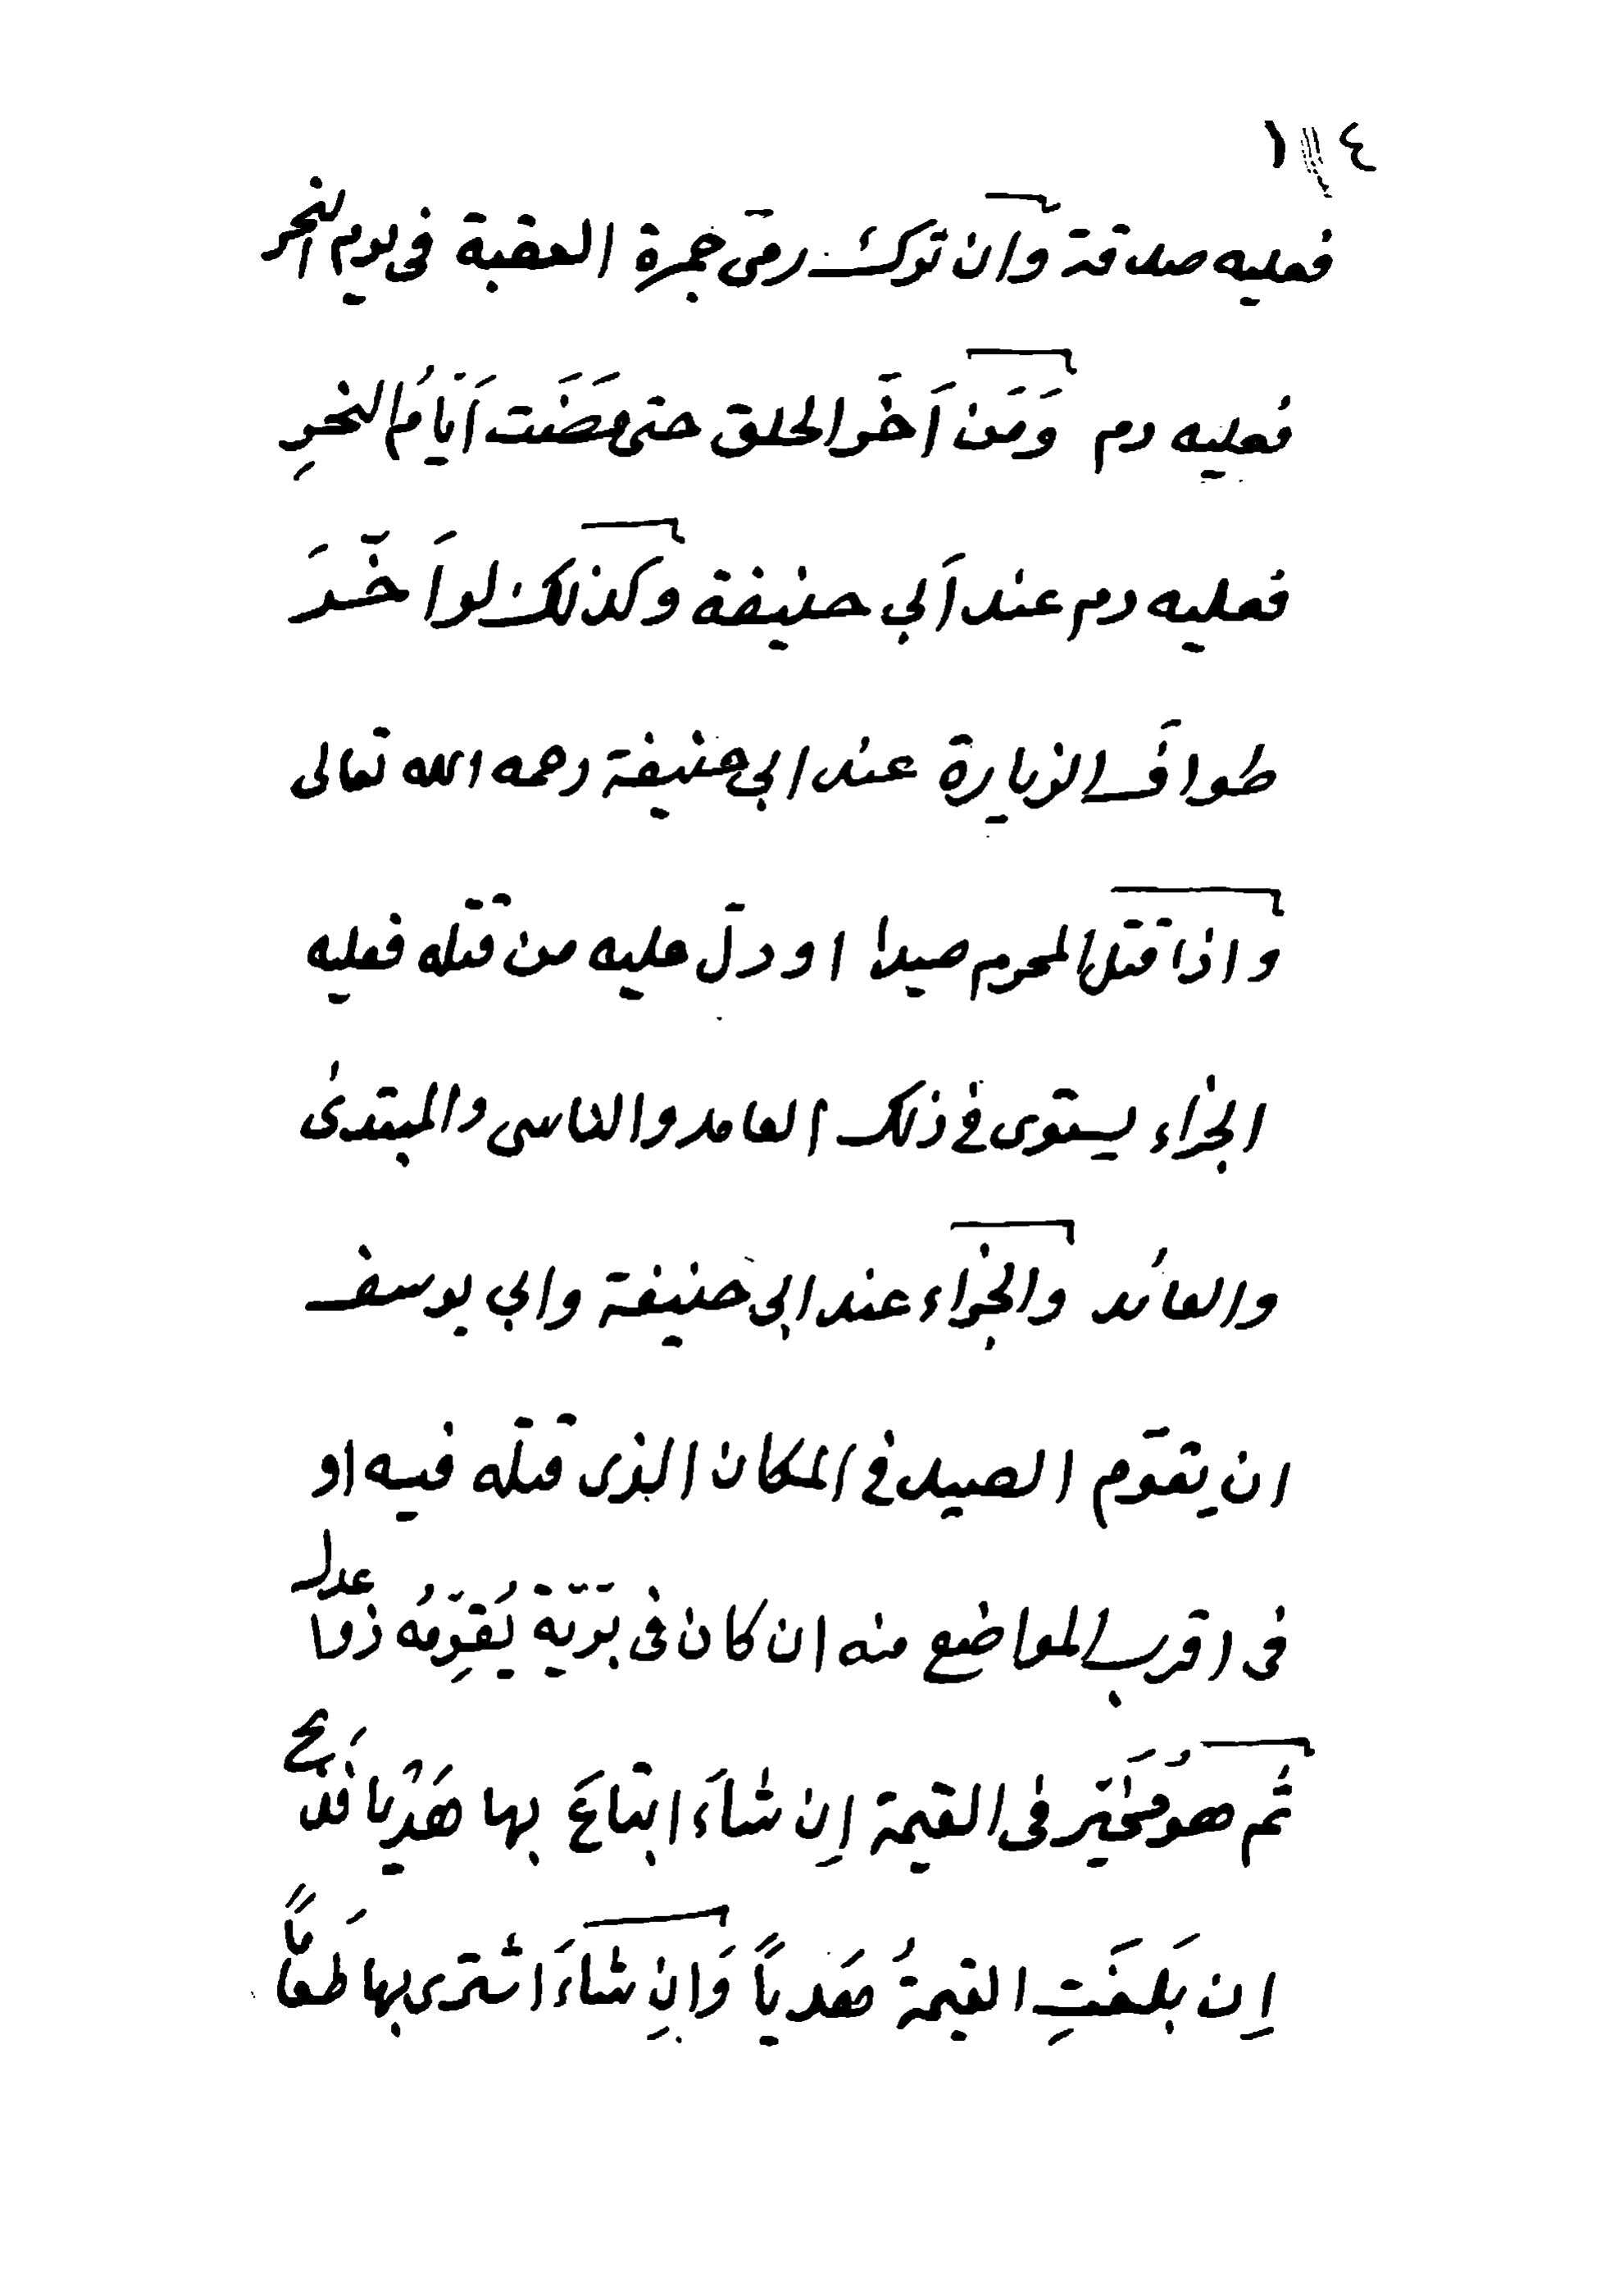 ١ ٤
فعليه صدقة وان ترك رمى جمرة العقبة فى يوم النحر
فعليه دم وَمَن اَخَّر الحلق حتى مَضَت اَيَّامُ النحرِ
فعليه دم عند اَبي حنيفة وكذلك لو اَخَّرَ
طوافَ الزيارة عند ابي حنيفة رحمه الله تعالى
واذا قتل المحرم صيدا او دلّ عليه من قتله فعليه
الجزاء يستوى فى ذلك العامد والناسى والمبتدئ
والعائد والجزاء عند ابى حنيفة وابي يوسف
ان يقوّم الصيد في المكان الذى قتله فيه او
فى اقرب المواضع منه ان كان فى بَرّيّة يُقوِّمُه ذوا عدل
ثم هو مُخَيَّر فى القيمة اِن شاَءَ ابتاعَ بها هَدْيًا فذبح
اِن بَلَغَتِ القيمةُ هَدياً وَاِن شاءَ اشترى بها طَعاماً